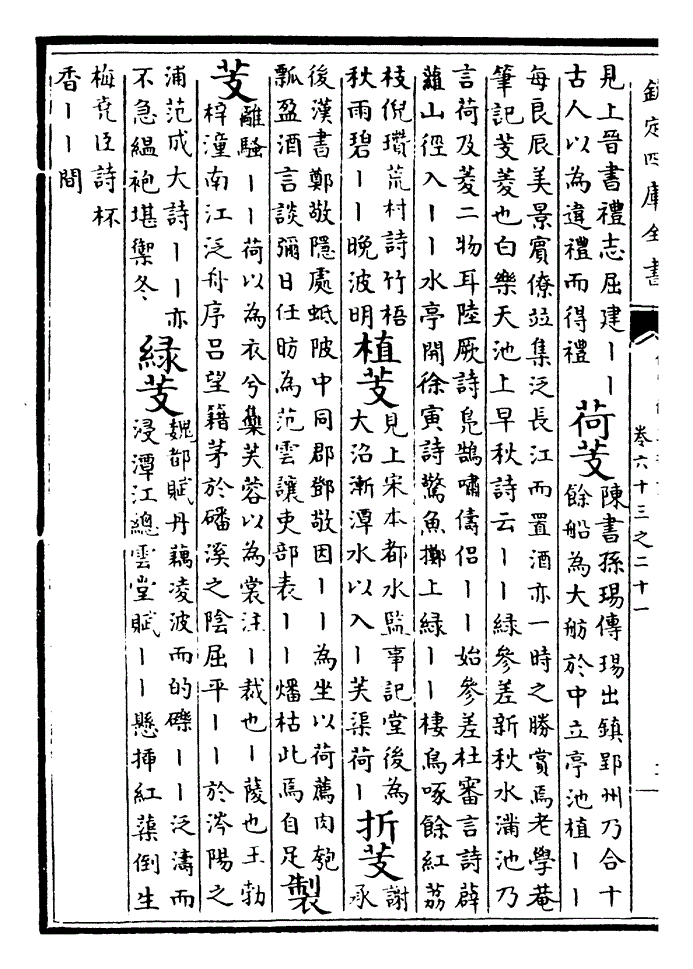 欽定四庫全書
卷六十三之二十一
見上晉書禮志屈建丨丨
古人以為違禮而得禮
荷芰
陳書孫瑒傳瑒出鎮郢州乃合十
餘船為大舫於中立亭池植丨丨
每良辰美景賓僚竝集泛長江而置酒亦一時之勝賞焉老學菴
筆記芰菱也白樂天池上早秋詩云丨丨綠參差新秋水滿池乃
言荷及菱二物耳陸厥詩鳧鵠嘯儔侶丨丨始參差杜審言詩薜
蘿山徑入丨丨水亭開徐寅詩驚魚擲上綠丨丨棲鳥啄餘紅荔
枝倪瓚荒村詩竹梧
秋雨碧丨丨晚波明
植芰
見上宋本都水監事記堂後為
大沼漸潭水以入丨芙渠荷丨
折芰
謝
承
後漢書鄭敬隱處蚳陂中同郡鄧敬因丨丨為坐以荷薦肉匏
瓢盈酒言談彌日任昉為范雲讓吏部表丨丨燔枯此焉自足
製
芰
離騷丨丨荷以為衣兮集芙蓉以為裳注丨裁也丨蔆也王勃
梓潼南江泛舟序呂望籍茅於磻溪之陰屈平丨丨於涔陽之
浦范成大詩丨丨亦
不急縕袍堪禦冬
綠芰
魏都賦丹藕凌波而的皪丨丨泛濤而
浸潭江總雲堂賦丨丨懸插紅蕖倒生
梅堯臣詩杯
香丨丨間